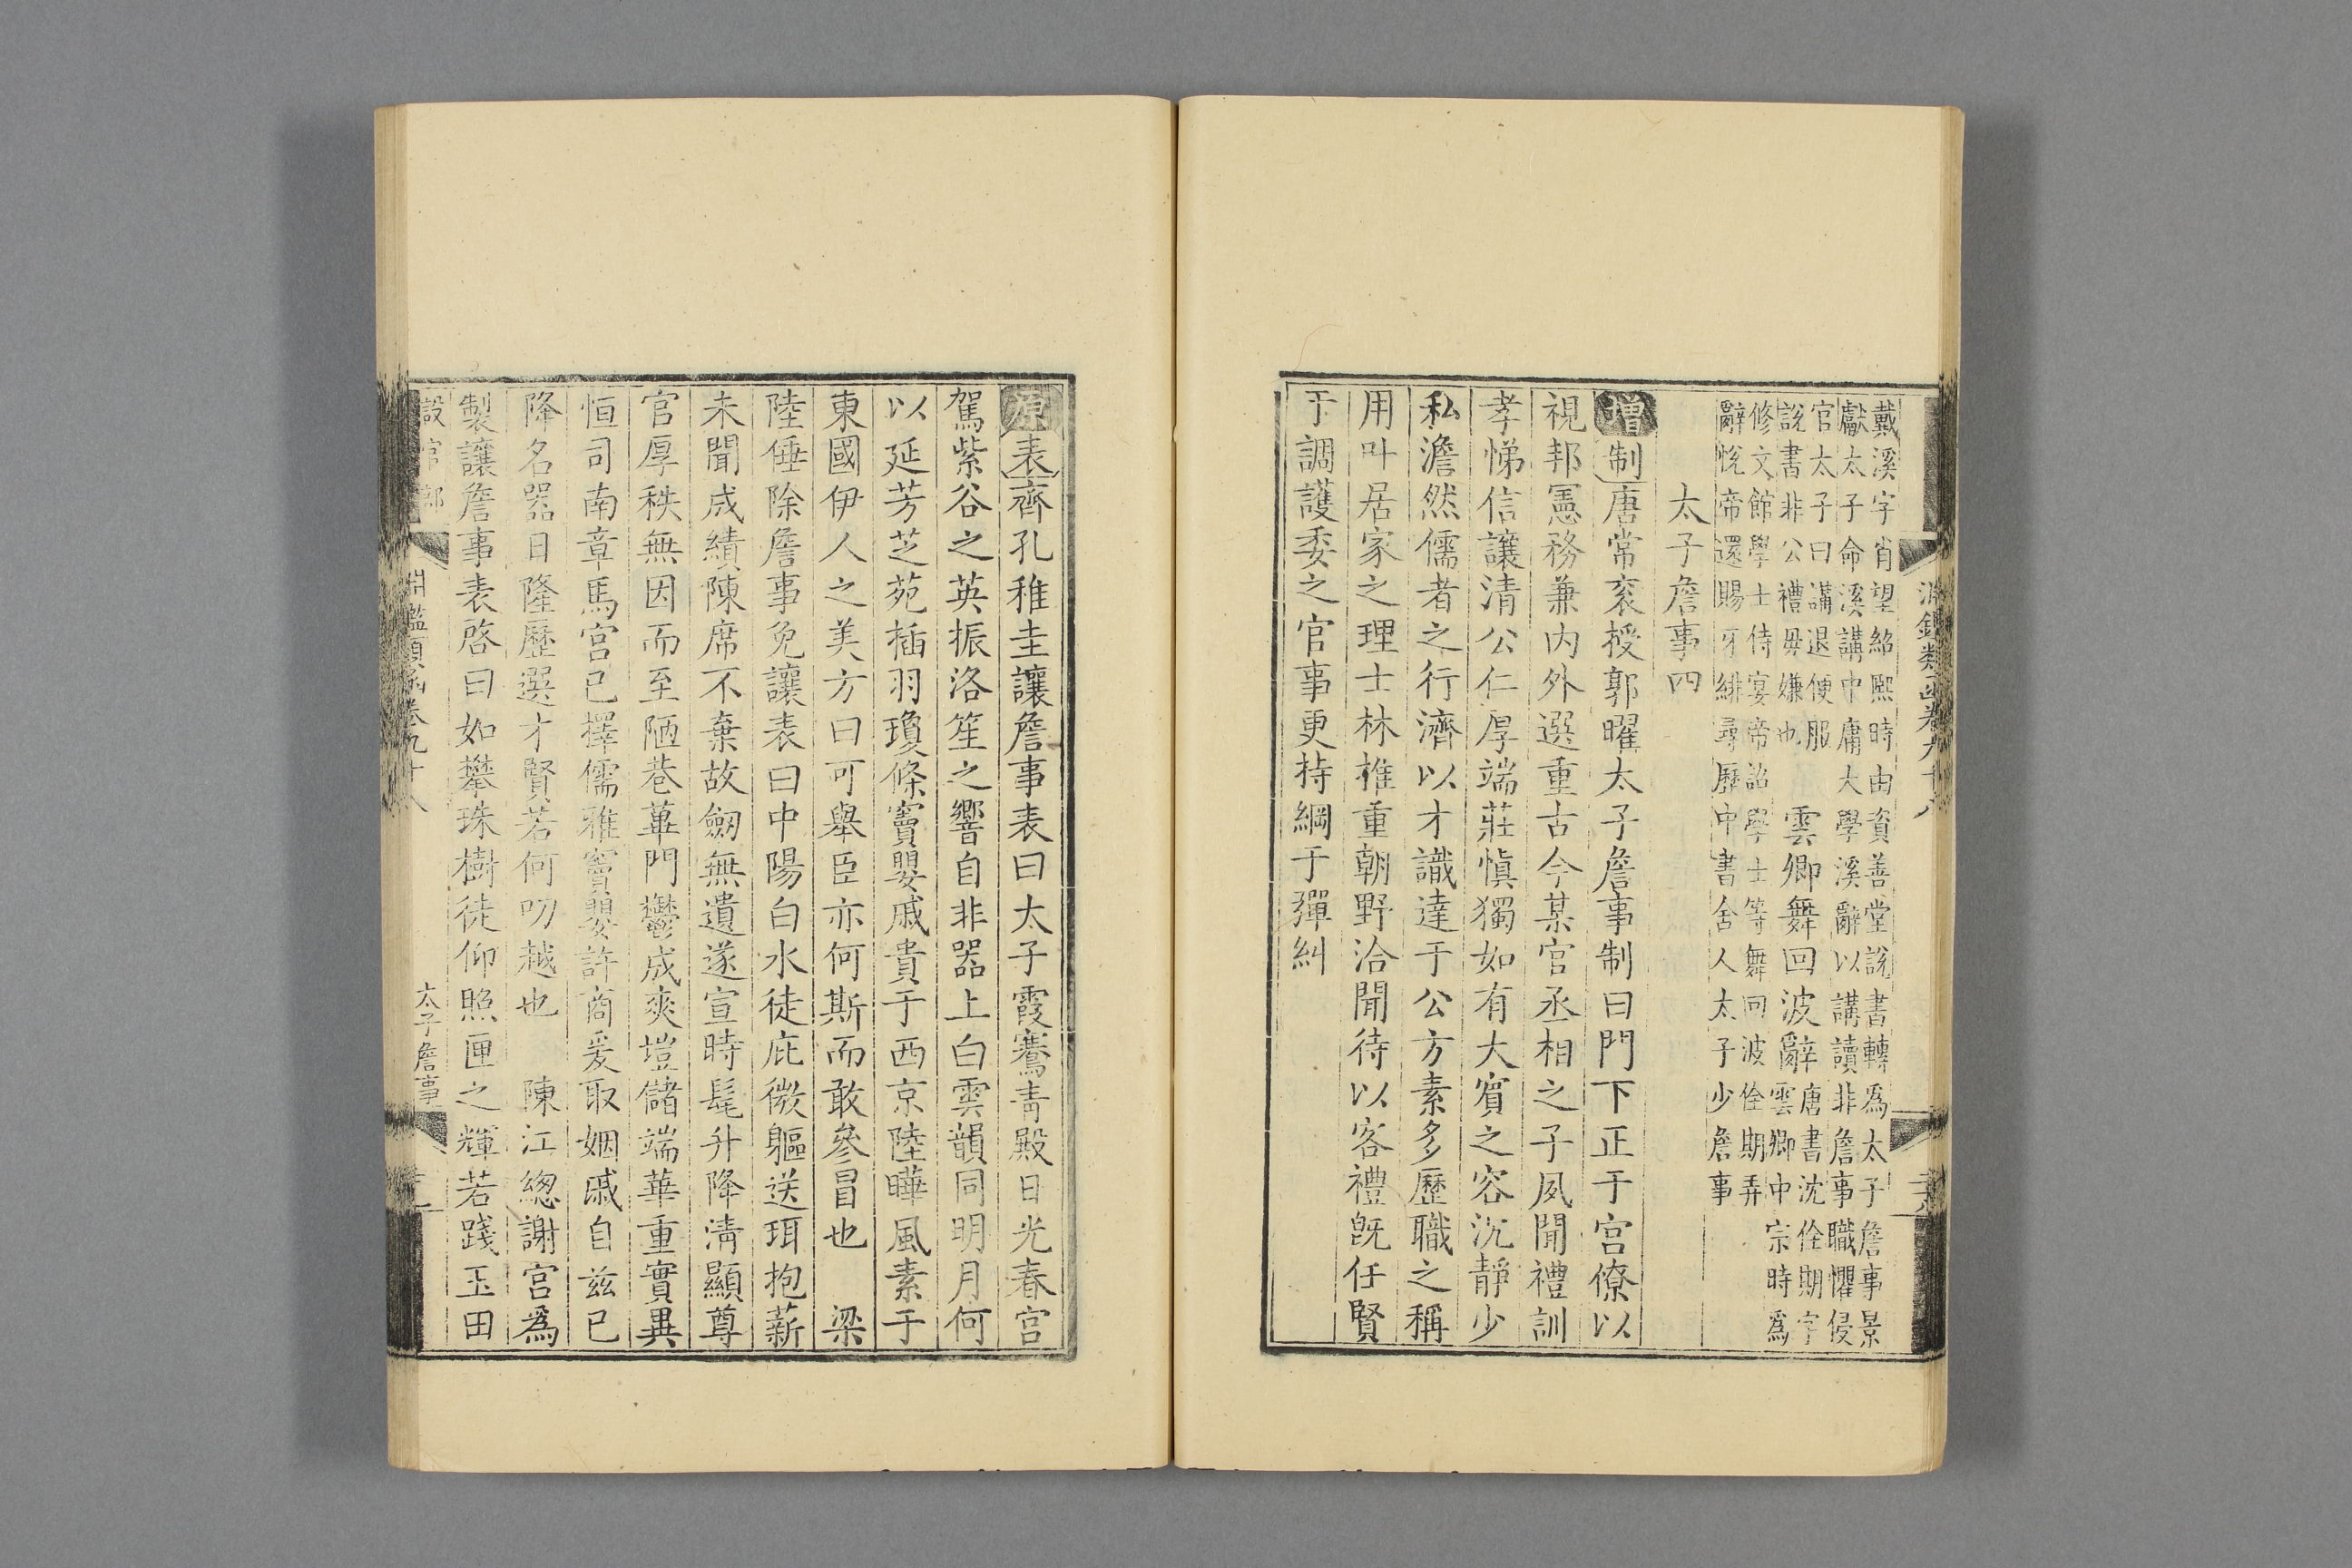 淵鑑類函卷九十八
戴溪字肖望紹熙時由資善堂說書轉為太子詹事景
獻太子命溪講中庸大學溪辭以講讀非詹事職懼侵
官太子曰講退便服
說書非公禮毋嫌也
雲卿舞回波辭
唐書沈佺期字
雲卿中宗時為
修文館學士侍宴帝詔學士等舞回波佺期弄
辭悅帝還賜牙緋尋歷中書舍人太子少詹事
太子詹事四
增制唐常袞授郭曜太子詹事制曰門下正于宮僚以
視邦憲務兼內外選重古今某官丞相之子夙聞禮訓
孝悌信讓清公仁厚端莊慎獨如有大賓之容沉靜少
私澹然儒者之行濟以才識達于公方素多歷職之稱
用叶居家之理士林推重朝野洽聞待以客禮既任賢
于調護委之官事更持綱于彈糾
原表齊孔稚圭讓詹事表曰太子霞騫青殿日光春宮
駕紫谷之英振洛笙之響自非器上白雲韻同明月何
以延芳芝苑插羽瓊條竇嬰戚貴于西京陸曄風素于
東國伊人之美方曰可舉臣亦何斯而敢參冒也　梁
陸倕除詹事免讓表曰中陽白水徒庇微軀送珥抱薪
未聞成績陳席不棄故劒無遺遂宣時髦升降清顯尊
官厚秩無因而至陋巷蓽門鬱成爽塏儲端華重實異
恒司南章馬宮已擇儒雅竇嬰許商爰取姻戚自兹已
降名器日隆歷選才賢若何叨越也　陳江緫謝宮為
製讓詹事表啓曰如攀珠樹徒仰照匣之輝若踐玉田
設官部
淵鑑類函卷九十八
太子詹事